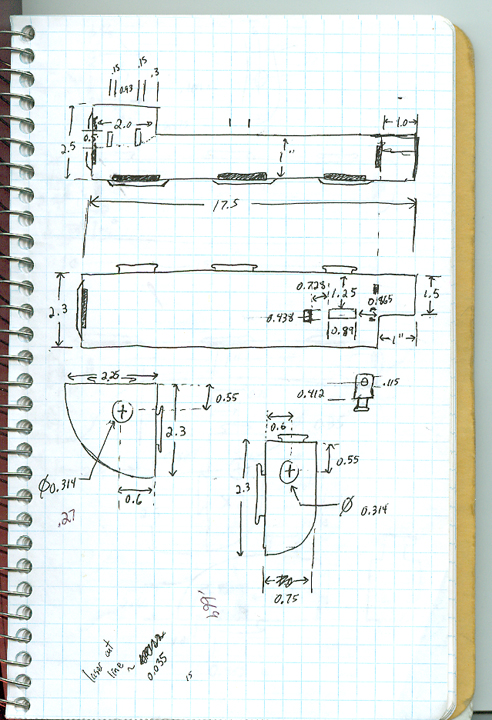 .15
.15
0.93
.3
2.5
2.0
0.5
1"
1.0
17.5
2.3
0.728
1.25
0.438
0.89
0.1865
1.5
1"
2.25
0.55
2.3
0.412
.115
Ø0.314
0.6
.27
0.6
2.3
0.55
Ø 0.314
0.75
laser cut
line ~ 0.035
15